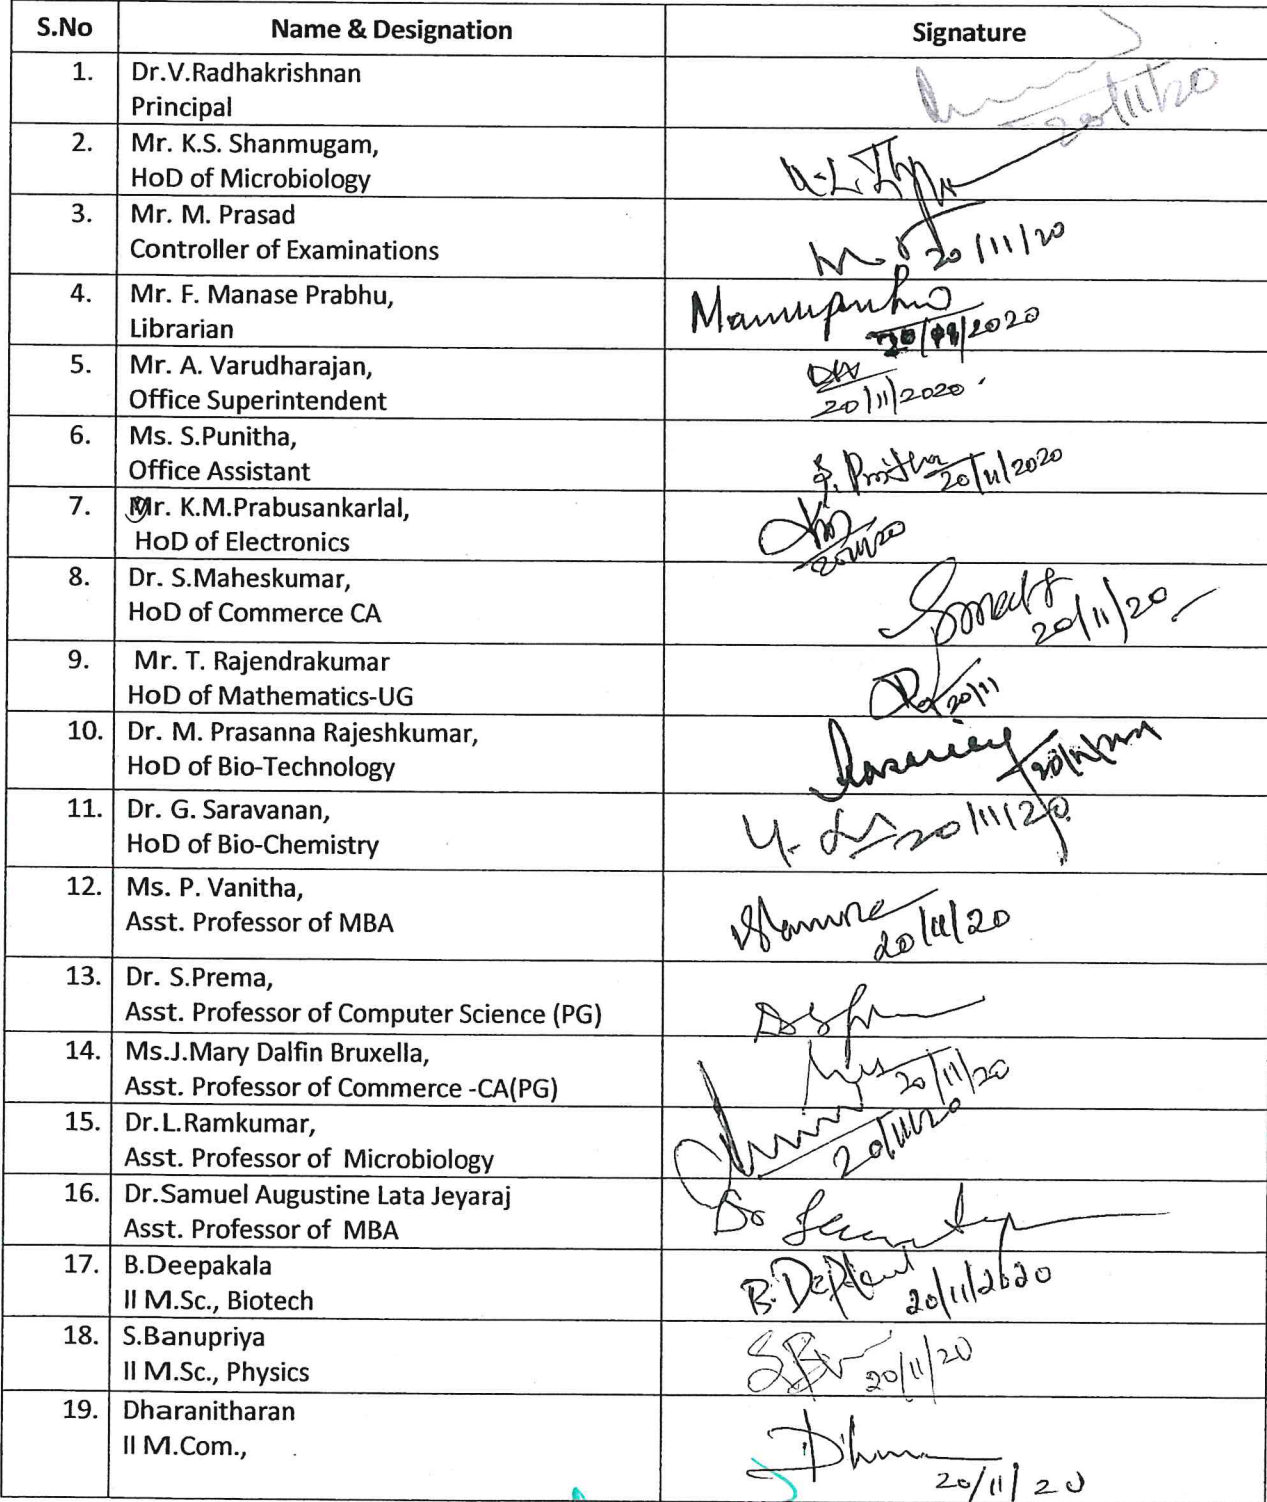 S.No Name & Designation Signature
1. Dr.V.Radhakrishnan
Principal
20/11/20
2. Mr. K.S. Shanmugam,
HoD of Microbiology
3. Mr. M. Prasad
Controller of Examinations
20/11/20
4. Mr. F. Manase Prabhu,
Librarian
/2020
5. Mr. A. Varudharajan,
Office Superintendent
20/11/2020
6. Ms. S.Punitha,
Office Assistant
20/11/2020
7. Mr. K.M.Prabusankarlal,
HoD of Electronics
20/11/20
8. Dr. S.Maheskumar,
HoD of Commerce CA
20/11/20
9. Mr. T. Rajendrakumar
HoD of Mathematics-UG
20/11
10. Dr. M. Prasanna Rajeshkumar,
HoD of Bio-Technology
11. Dr. G. Saravanan,
HoD of Bio-Chemistry
20/11/20
12. Ms. P. Vanitha,
Asst. Professor of MBA
20/11/20
13. Dr. S.Prema,
Asst. Professor of Computer Science (PG)
14. Ms.J.Mary Dalfin Bruxella,
Asst. Professor of Commerce -CA(PG)
20/11/20
15. Dr.L.Ramkumar,
Asst. Professor of Microbiology
20/11/20
16. Dr.Samuel Augustine Lata Jeyaraj
Asst. Professor of MBA
17. B.Deepakala
II M.Sc., Biotech
20/11/2020
18. S.Banupriya
II M.Sc., Physics
20/11/20
19. Dharanitharan
II M.Com.,
20/11/20